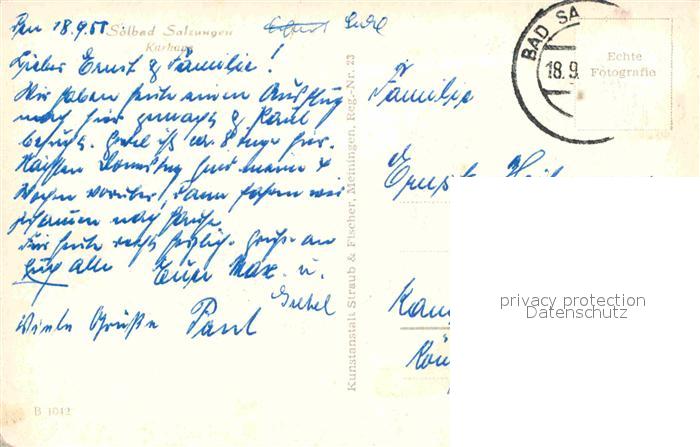 Den 18.9.5
Solbad Salzungen
Kurhaus
Lieber Ernst & Familie!
Wir haben heute einen Ausflug
nach hier gemacht & Paul
besucht. ist 8 Tage hier.
Nächsten Donnerstag sind meine 4
Wochen vorüber, dann fahren wir
zusammen nach Hause
Für heute recht herzliche Grüße an
Euch alle Euer Max. u.
Viele Grüße Paul
B 1042
Kunstanstalt Straub & Fischer, Meiningen, Reg.-Nr. 23
BAD SA
18.9.
Echte
Fotografie
Familie
Ernst
privacy protection
Datenschutz